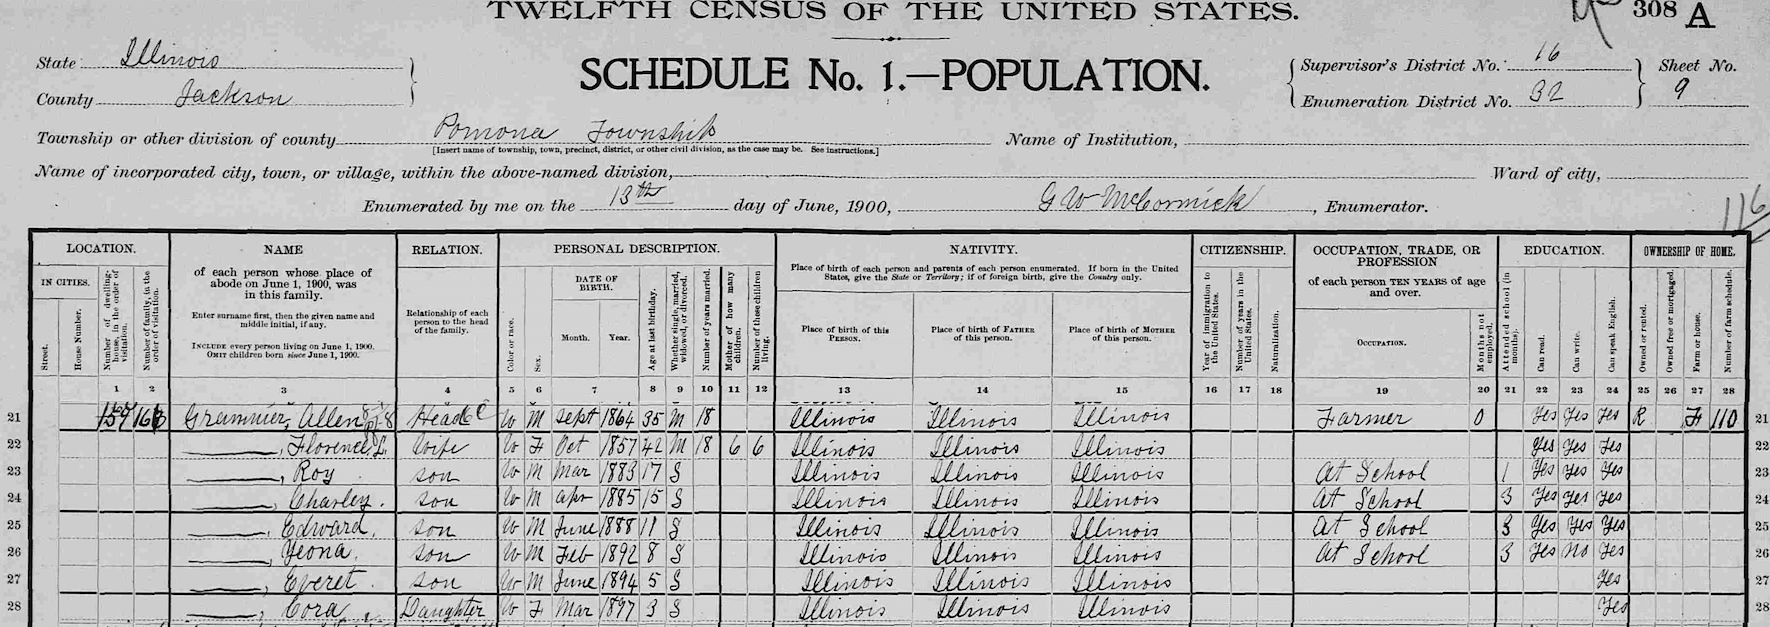 TWELFTH CENSUS OF THE UNITED STATES.
308 A
State Illinois
County Jackson
SCHEDULE No. 1.—POPULATION.
Supervisor's District No. 16
Enumeration District No. 32
Sheet No.
9
Township or other division of county Pomona Township
[Insert name of township, town, precinct, district, or other civil division, as the case may be. See instructions.]
Name of Institution,
Name of incorporated city, town, or village, within the above-named division,
Ward of city,
Enumerated by me on the 13th day of June, 1900, G W McCormick, Enumerator.
116
LOCATION. NAME RELATION. PERSONAL DESCRIPTION. NATIVITY. CITIZENSHIP. OCCUPATION, TRADE, OR PROFESSION EDUCATION. OWNERSHIP OF HOME.
IN CITIES.
Street.
House Number.
Number of dwelling-house, in the order of visitation.
Number of family, in the order of visitation.
of each person whose place of abode on June 1, 1900, was in this family.
Enter surname first, then the given name and middle initial, if any.
INCLUDE every person living on June 1, 1900.
OMIT children born since June 1, 1900.
Relationship of each person to the head of the family.
Color or race.
Sex.
DATE OF BIRTH.
Month. Year.
Age at last birthday.
Whether single, married, widowed, or divorced.
Number of years married.
Mother of how many children.
Number of these children living.
Place of birth of each person and parents of each person enumerated. If born in the United States, give the State or Territory; if of foreign birth, give the Country only.
Place of birth of this PERSON.
Place of birth of FATHER of this person.
Place of birth of MOTHER of this person.
Year of immigration to the United States.
Number of years in the United States.
Naturalization.
of each person TEN YEARS of age and over.
OCCUPATION.
Months not employed.
Attended school (in months).
Can read.
Can write.
Can speak English.
Owned or rented.
Owned free or mortgaged.
Farm or house.
Number of farm schedule.
1 2 3 4 5 6 7 8 9 10 11 12 13 14 15 16 17 18 19 20 21 22 23 24 25 26 27 28
21 Allen Head W M Sept 1864 35 M 18 Illinois Illinois Illinois Farmer 0 Yes Yes Yes R F 110 21
22 , Florence L. Wife W F Oct 1857 42 M 18 6 6 Illinois Illinois Illinois Yes Yes Yes 22
23 , Roy son W M Mar 1883 17 S Illinois Illinois Illinois At School 1 Yes Yes Yes 23
24 , Charley. son W M Apr 1885 15 S Illinois Illinois Illinois At School 3 Yes Yes Yes 24
25 , Edward. son W M June 1888 11 S Illinois Illinois Illinois At School 3 Yes Yes Yes 25
26 , Yeona. son W M Feb 1892 8 S Illinois Illinois Illinois At School 3 Yes No Yes 26
27 , Everet. son W M June 1894 5 S Illinois Illinois Illinois Yes 27
28 , Cora Daughter W F Mar 1897 3 S Illinois Illinois Illinois Yes 28